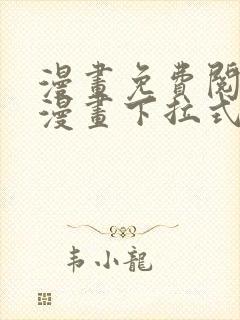 漫畫免費閱
漫畫下拉式
韦小龍